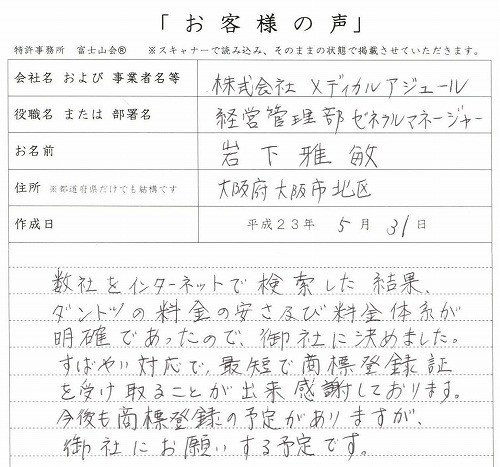 「お客様の声」
特許事務所 富士山会® ※スキャナーで読み込み、そのままの状態で掲載させていただきます。
会社名 および 事業者名等 株式会社 メディカルアジュール
役職名 または 部署名 経営管理部ゼネラルマネージャー
お名前 岩下雅敏
住所 ※都道府県だけでも結構です 大阪府大阪市北区
作成日 平成23年 5月 31日
数社をインターネットで検索した結果、
ダントツの料金の安さ及び料金体系が
明確であったので、御社に決めました。
すばやい対応で、最短で商標登録証
を受け取ることが出来感謝しております。
今後も商標登録の予定がありますが、
御社にお願いする予定です。